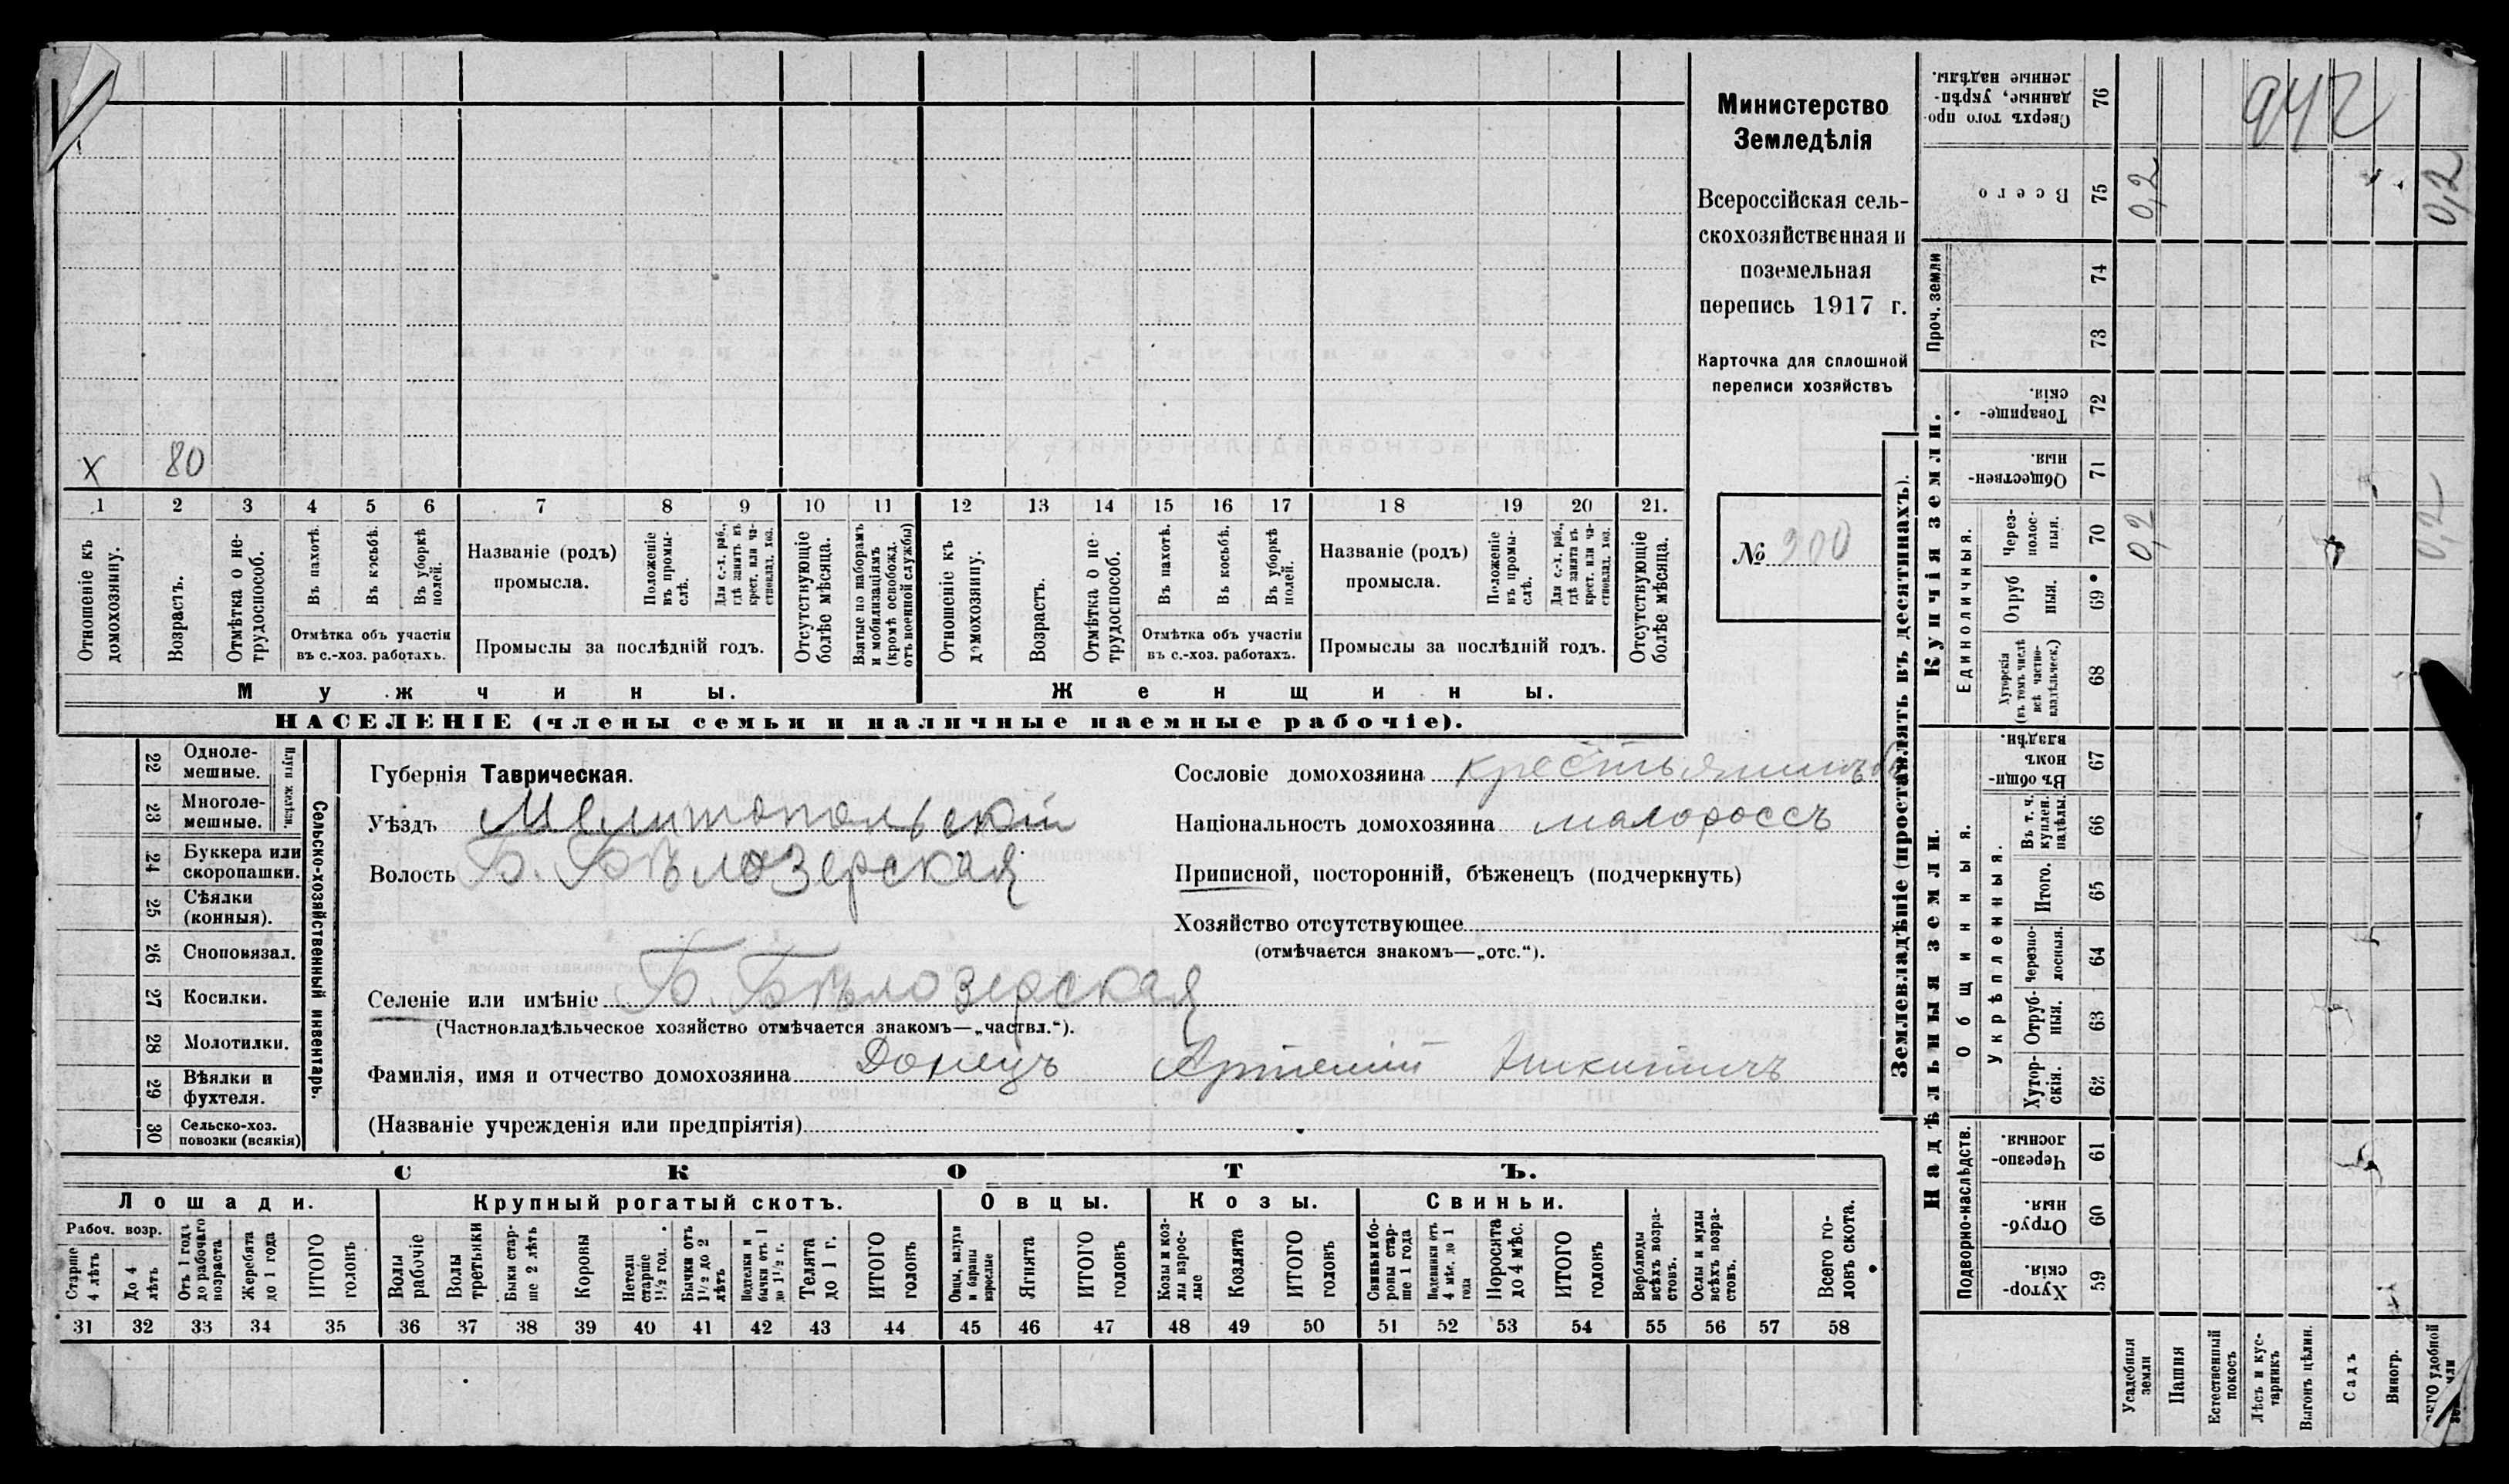 942
Министерство
Земледѣлія
Всероссійская сель-
скохозяйственная и
поземельная
перепись 1917 г.
Карточка для сплошной
переписи хозяйствъ
№ 900
х 80
1 2 3 4 5 6 7 8 9 10 11 12 13 14 15 16 17 18 19 20 21.
Отношеніе къ домохозяину.
Возрастъ.
Отмѣтка о не-трудоспособ.
Въ пахотѣ.
Въ косьбѣ.
Въ уборкѣ полей.
Отмѣтка объ участіи
въ с.-хоз. работахъ.
Названіе (родъ)
промысла.
Положеніе въ промы-слѣ.
Для с.-х. раб., гдѣ занятъ въ крест. или ча-стновлад. хоз.
Промыслы за послѣдній годъ.
Отсутствующіе болѣе мѣсяца.
Взятые по наборамъ и мобилизаціямъ (кромѣ освобожд. отъ военной службы)
Отношеніе къ домохозяину.
Возрастъ.
Отмѣтка о не-трудоспособ.
Въ пахотѣ.
Въ косьбѣ.
Въ уборкѣ полей.
Отмѣтка объ участіи
въ с.-хоз. работахъ.
Названіе (родъ)
промысла.
Положеніе въ промы-слѣ.
Для с.-х. раб., гдѣ занята въ крест. или ча-стновлад. хоз.
Промыслы за послѣдній годъ.
Отсутствующіе болѣе мѣсяца.
Мужчины. Женщины.
НАСЕЛЕНІЕ (члены семьи и наличные наемные рабочіе).
22 Однолемешные.
23 Многолемешные.
Плуги желѣзн.
24 Буккера или скоропашки.
25 Сѣялки (конныя).
26 Сноповязал.
27 Косилки.
28 Молотилки.
29 Вѣялки и фухтеля.
30 Сельско-хоз. повозки (всякія)
Сельско-хозяйственный инвентарь.
Губернія Таврическая.
Уѣздъ Мелитопольскій
Волость Б. Бѣлозерская
Селеніе или имѣніе Б. Бѣлозерская
(Частновладѣльческое хозяйство отмѣчается знакомъ—„частвл.“).
Фамилія, имя и отчество домохозяина Донецъ Артемій Никитичъ
(Названіе учрежденія или предпріятія)
Сословіе домохозяина крестьянинъ
Національность домохозяина малороссъ
Приписной, посторонній, бѣженецъ (подчеркнуть)
Хозяйство отсутствующее
(отмѣчается знакомъ—„отс.“).
СКОТЪ.
Лошади. Крупный рогатый скотъ. Овцы. Козы. Свиньи.
Рабоч. возр.
Старше 4 лѣтъ
До 4 лѣтъ
Отъ 1 года до рабочаго возраста
Жеребята до 1 года
ИТОГО головъ
Волы рабочіе
Волы третьяки
Быки стар-ше 2 лѣтъ
Коровы
Нетели старше 1½ год.
Бычки отъ 1½ до 2 лѣтъ
Подтелки и бычки отъ 1 до 1½ г.
Телята до 1 г.
ИТОГО головъ
Овцы, валухи и бараны взрослые
Ягнята
ИТОГО головъ
Козы и коз-лы взрос-лые
Козлята
ИТОГО головъ
Свиньи и бо-ровы стар-ше 1 года
Подсвинки отъ 4 мѣс. до 1 года
Поросята до 4 мѣс.
ИТОГО головъ
Верблюды всѣхъ возра-стовъ.
Ослы и мулы всѣхъ возра-стовъ.
Всего го-ловъ скота.
31 32 33 34 35 36 37 38 39 40 41 42 43 44 45 46 47 48 49 50 51 52 53 54 55 56 57 58
Землевладѣніе (проставлять въ десятинахъ).
Надѣльныя земли. Купчія земли. Проч. земли
Подворно-наслѣдств.
Общинныя.
Укрѣпленныя.
Единоличныя.
59 Хутор-скія.
60 Отруб-ныя.
61 Черезпо-лосныя.
62 Хутор-скія.
63 Отруб-ныя.
64 Черезпо-лосныя.
65 Итого.
66 Въ т. ч. куплен. надѣлы.
67 Въ общин-номъ владѣн.
68 Хуторскія (въ томъ числѣ всѣ частно-владѣльческ.)
69 Отруб ныя.
70 Через-полос-ныя. 0,2 0,2
71 Обществен-ныя.
72 Товарище-скія.
73
74
75 Всего 0,2 0,2
76 Сверхъ того про-данные, укрѣп-ленные надѣлы.
Усадебныя земли
Пашня
Естественный покосъ
Лѣсъ и кус-тарникъ
Выгонъ цѣлин.
Садъ
Виногр.
удобной